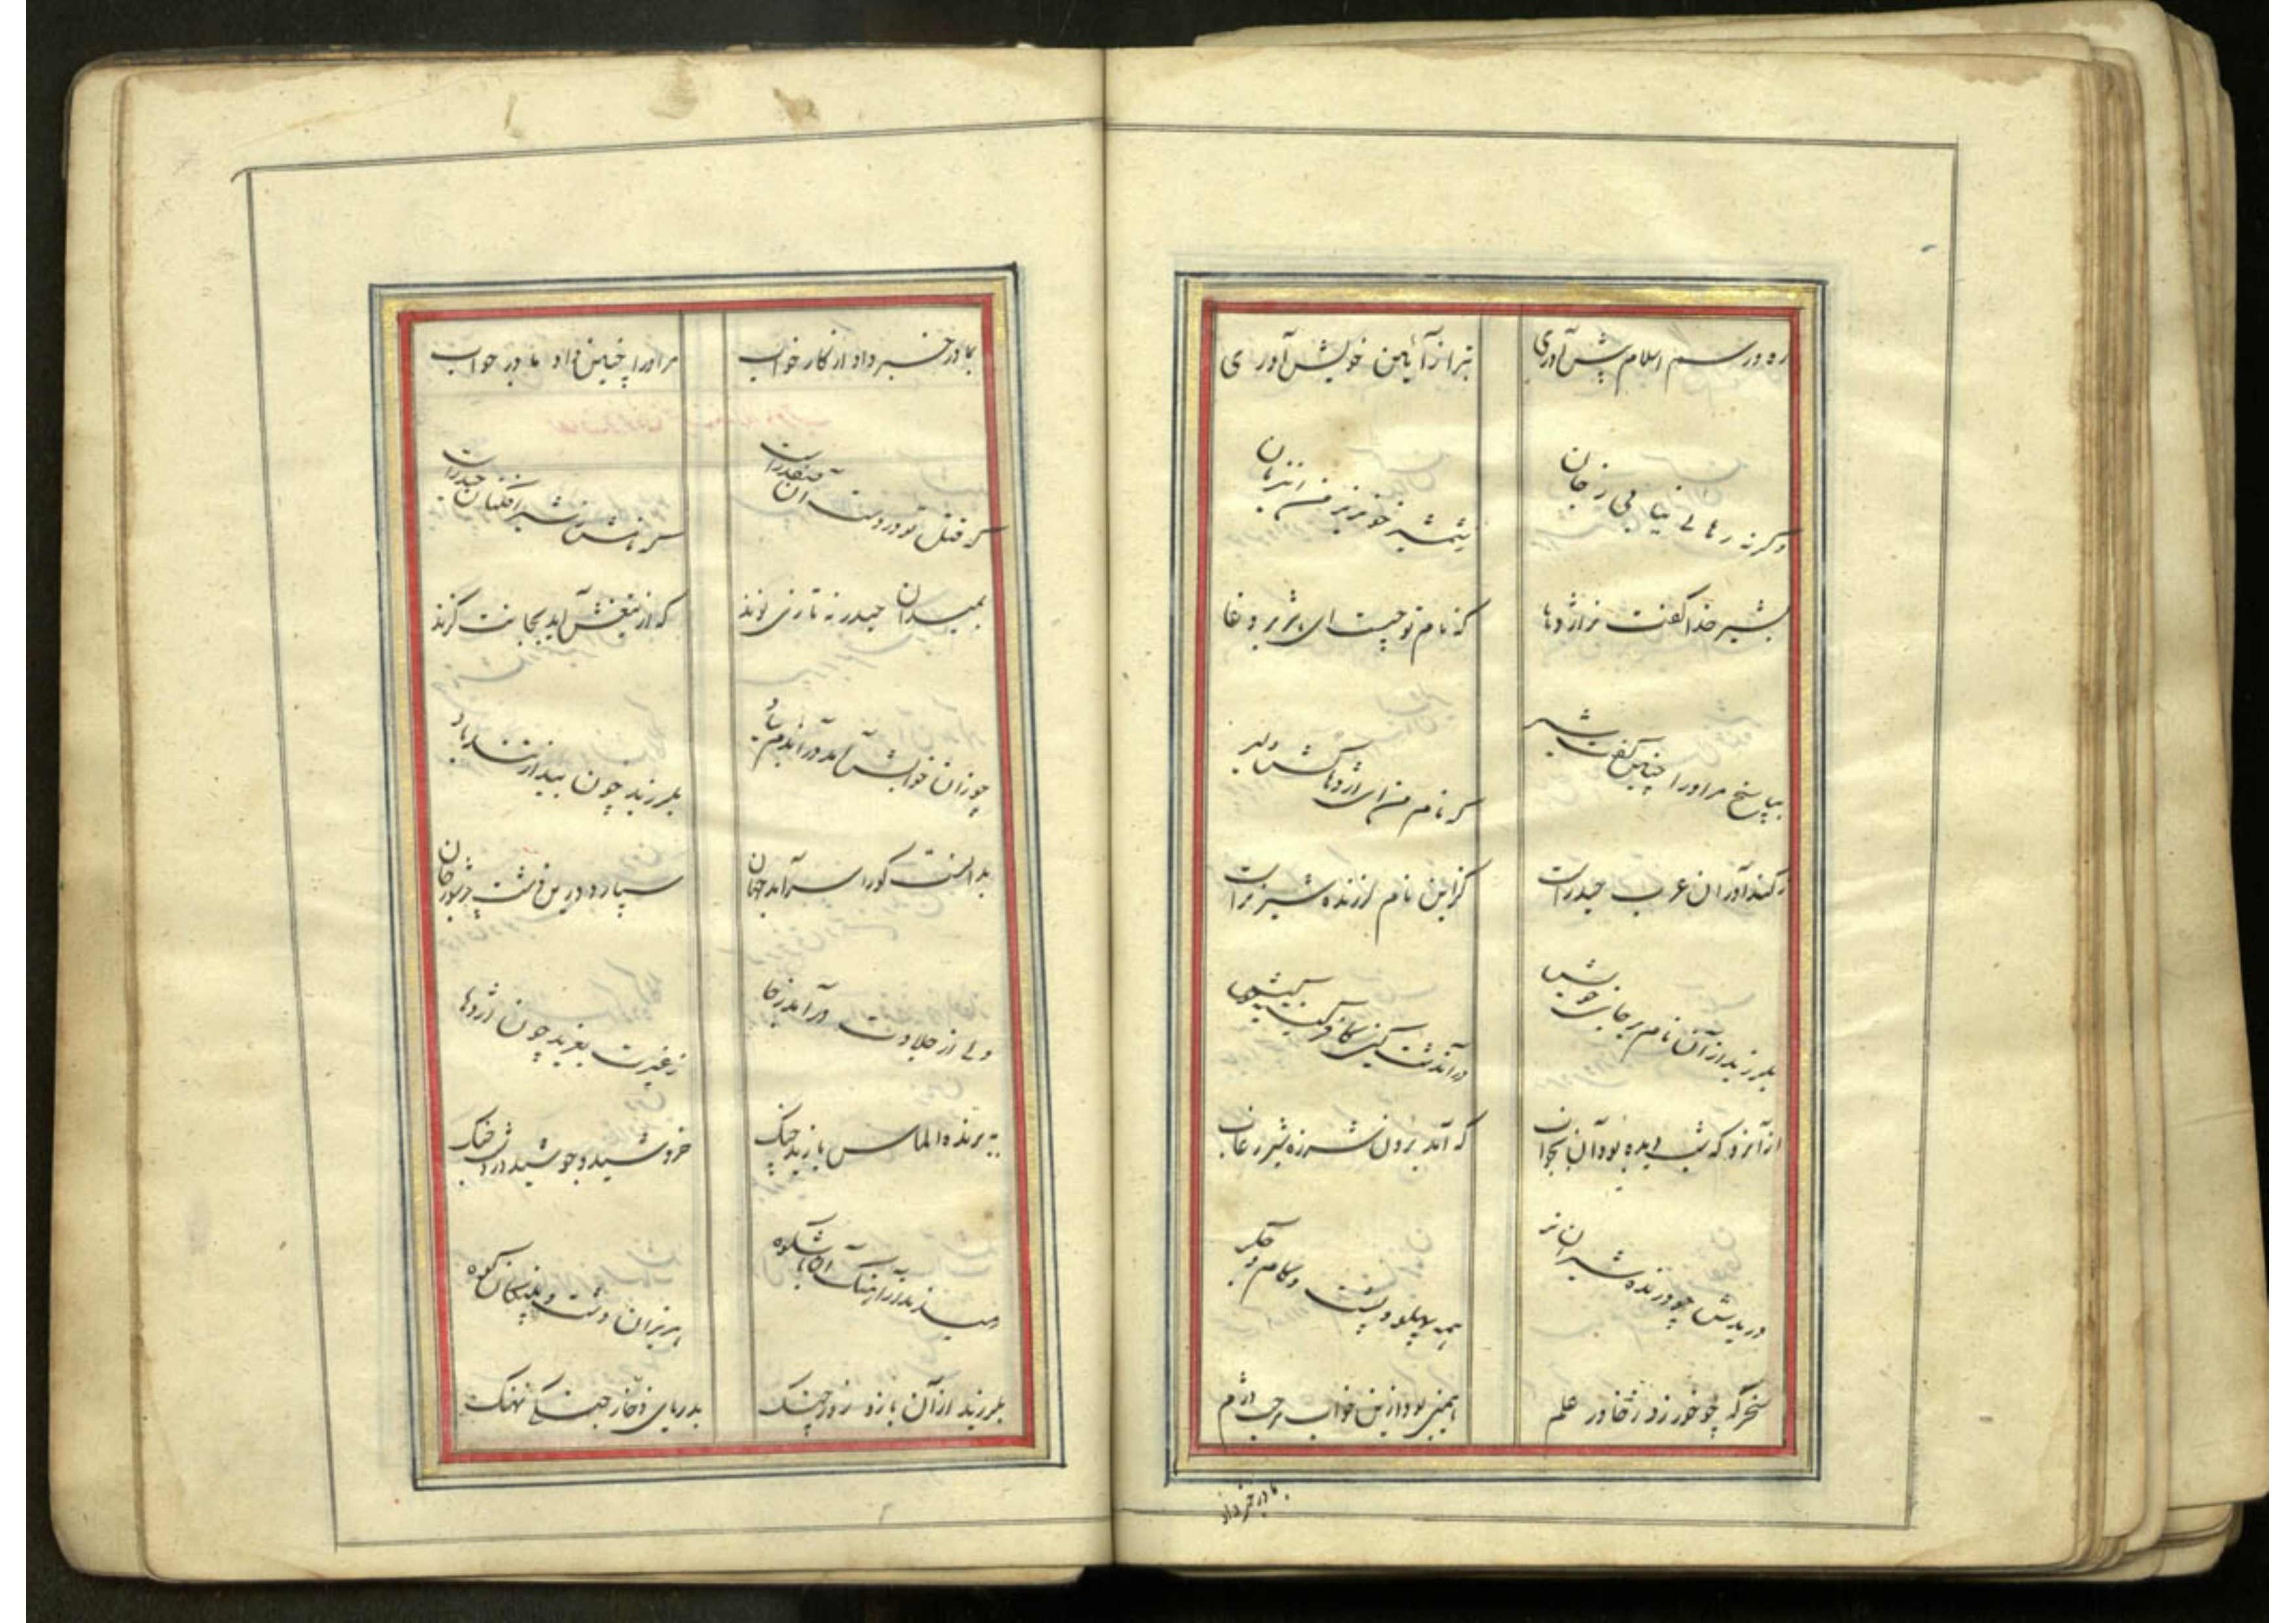 ره و رسم اسلام پیش آوری تبرا ز آیین خویش آوری
وگرنه رهائی نیابی ز جان بشمشیر خونریز من این زمان
بشیر خدا گفت نر اژدها که نام تو چیست ای هژبر وغا
بپاسخ مر او را چنین گفت شیر که نام من ای اژدهاکش دلیر
ز کندآوران عرب حیدر است کزاین نام لرزنده شیر نر است
بلرزید از آن نام بر جان خویش
از آنرو که شب دیده بود آن بخواب که آمد برون شرزه شیر ز غاب
دریدش چو درنده شیران نر همه پهلو و پشت و کام و جگر
سحرگه چو خور زد ز خاور علم همی بود ازین خواب مرحب دژم
بمادر خبر داد
بمادر خبر داد از کار خواب مر او را چنین داد مادر جواب
که قتل تو در دست آن صفدر است که نامش ز شیرافکنان حیدر است
بمیدان حیدر نه تازی نوند که از تیغش آید بجانت گزند
چو زان خوابش آمد در آندم بیاد بلرزید چون بید از تندباد
بدانست کو را سرآمد جهان سپارد درین دشت پرشور جان
ولی از جلادت درآمد ز جا ز غیرت بغرید چون اژدها
به برنده الماس یازید چنگ خروشید و جوشید در دشت جنگ
رمیدند از آهنگ آن باشکوه هزبران دشت و پلنگان کوه
بلرزید از آن بازو و زور چنگ بدریای ذخار جنگی نهنگ